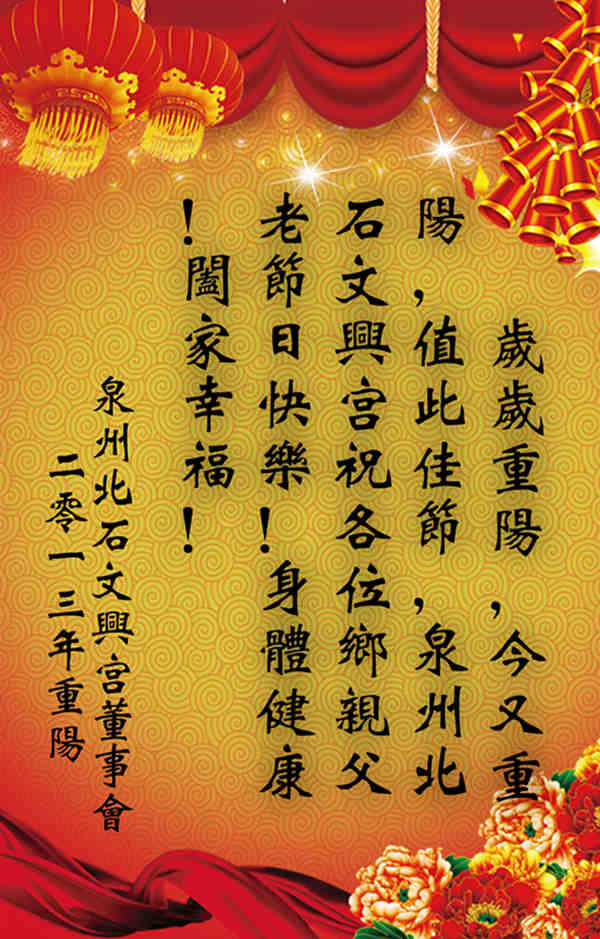 歲歲重陽,今又重
陽,值此佳節,泉州北
石文興宮祝各位鄉親父
老節日快樂!身體健康
!闔家幸福!
泉州北石文興宮董事會
二零一三年重陽